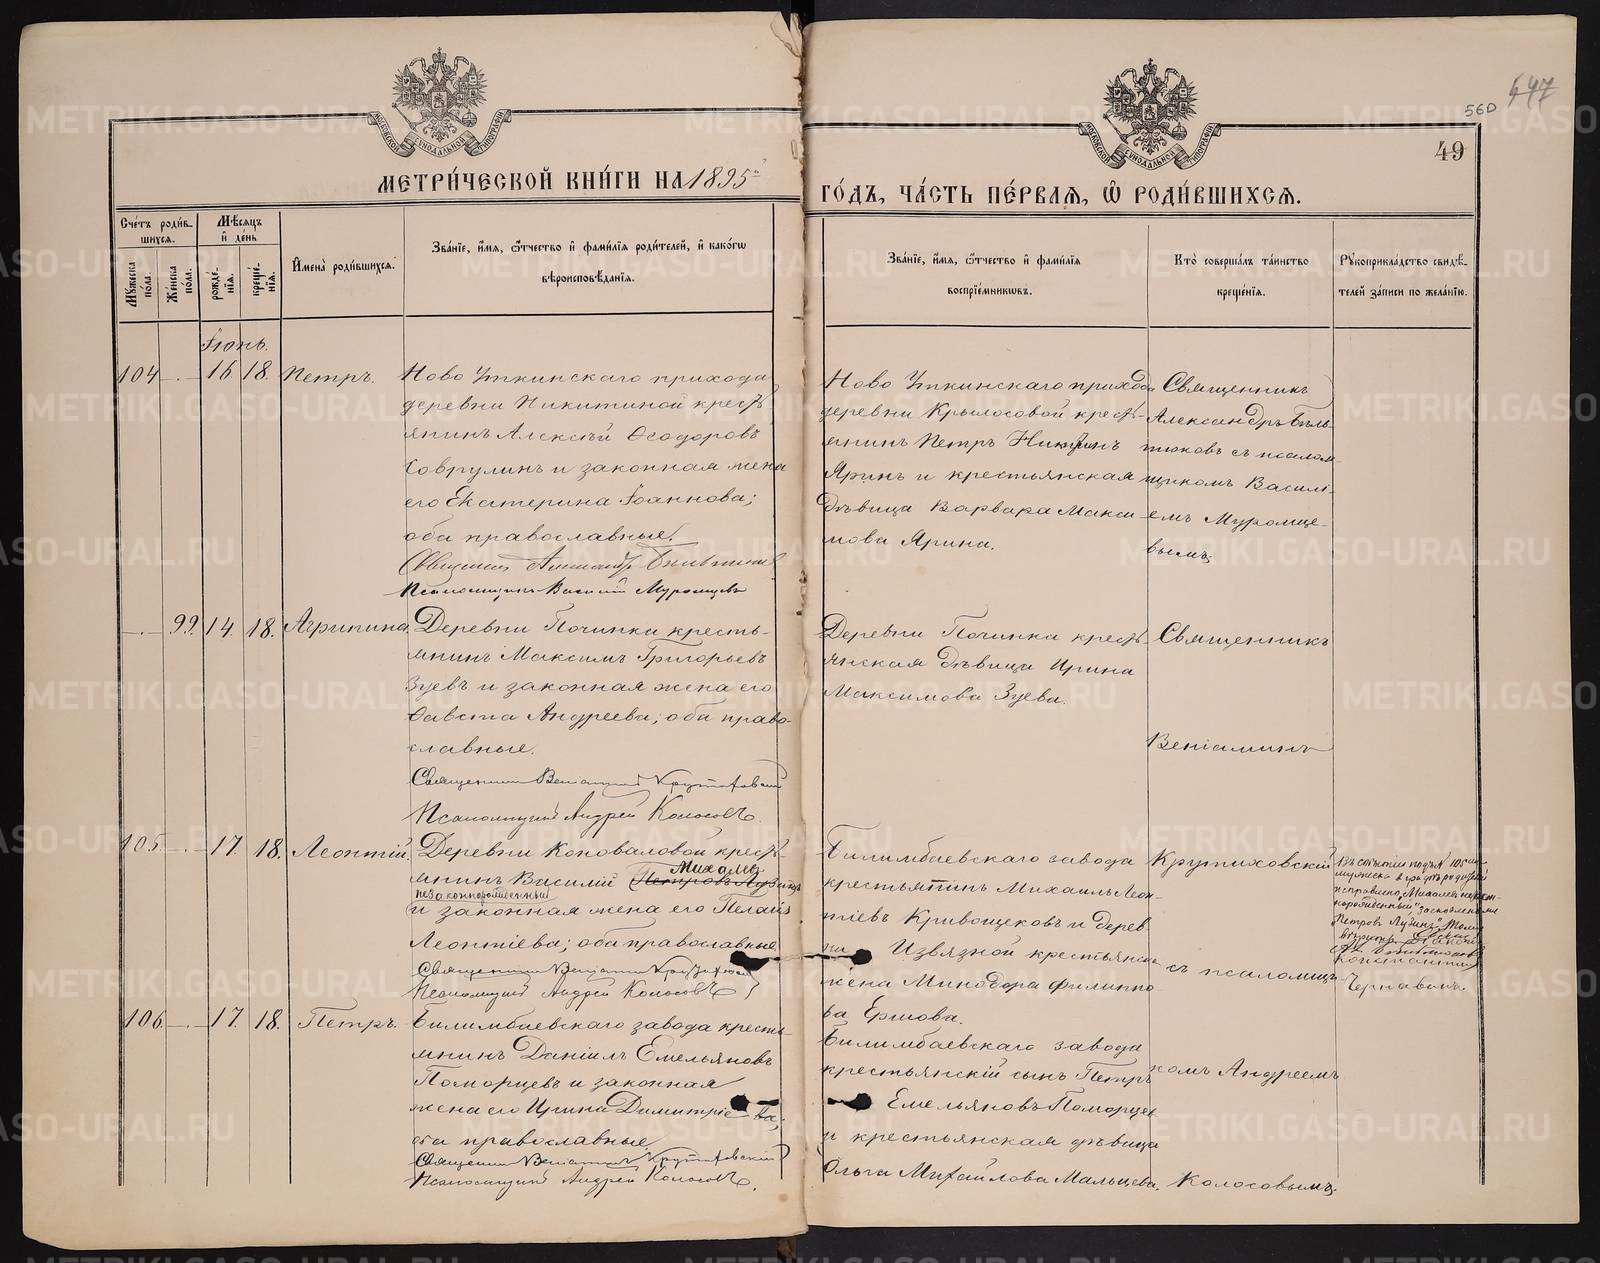 447
560
49
МЕТРИ́ЧЕСКОЙ КНИ́ГИ НА 1895й
ГО́ДЪ, ЧА́СТЬ ПЕ́РВАЯ, Ѿ РОДИ́ВШИХСЯ.
Сче́тъ роди́вшихся.
Мѣ́сяцъ и де́нь
Му́жеска по́ла.
Же́нска по́ла.
рожде́нїя.
креще́нїя.
И҆мена̀ роди́вшихся.
Зва́нїе, и҆́мя, ѻ҆́тчество и҆ фами́лїя роди́телей, и҆ како́гѡ
вѣроисповѣ́данїя.
Зва́нїе, и҆́мя, ѻ҆́тчество и҆ фами́лїя
воспрїе́мникѡвъ.
Кто̀ соверша́лъ та́инство
креще́нїя.
Рꙋкоприкла́дство свидѣ́-
телей за́писи по жела́нїю.
Іюнь.
104 — 16. 18. Петръ.
Ново Уткинскаго прихода
деревни Никитиной крест-
янинъ Алексѣй Ѳеодоровъ
Соврулинъ и законная жена
его Екатерина Іоаннова;
оба православные.
Священникъ Александръ
Псаломщикъ Василій Муромцевъ
Ново Уткинскаго прихода
деревни Крылосовой крест-
янинъ Петръ Никитинъ
Яринъ и крестьянская
дѣвица Варвара Макси
мова Ярина.
Священникъ
Александръ
съ псалом-
щикомъ Василі-
емъ Муромце-
вымъ.
— 99. 14. 18. Агрипина.
Деревни Починка кресть-
янинъ Максимъ Григорьевъ
Зуевъ и законная жена его
Ѳавста Андреева; оба право-
славные.
Священникъ Веніаминъ Крутиховскій
Псаломщикъ Андрей Колосовъ.
Деревни Починка крест-
янская дѣвица Ирина
Максимова Зуева.
Священникъ
Веніаминъ
105. — 17. 18. Леонтій.
Деревни Коноваловой крест-
Михаловъ
янинъ Василій Петровъ Лузинъ
незаконнорожденный
и законная жена его Пелагія
Леонтіева; оба православные
Священникъ Веніаминъ Крутиховскій
Псаломщикъ Андрей Колосовъ
Билимбаевскаго завода
крестьянинъ Михаилъ Леон-
тіевъ Кривощековъ и дерев
ни Извязной крестьянск
жена Минодора Филиппо
ва Ершова.
Крутиховскій
съ псаломщи
Въ событіи подъ № 105 м.
исправлено
Петровъ Лузинъ
Константинъ
Чернавинъ.
106. — 17. 18. Петръ.
Билимбаевскаго завода кресть
янинъ Даніилъ Емельяновъ
Поморцевъ и законная
жена его Ирина Димитріева;
оба православные
Священникъ Веніаминъ Крутиховскій
Псаломщикъ Андрей Колосовъ.
Билимбаевскаго завода
крестьянскій сынъ Петръ
Емельяновъ Поморцев
и крестьянская дѣвица
Ольга Михайлова Мальцева.
комъ Андреемъ
Колосовымъ.
METRIKI.GASO-URAL.RU